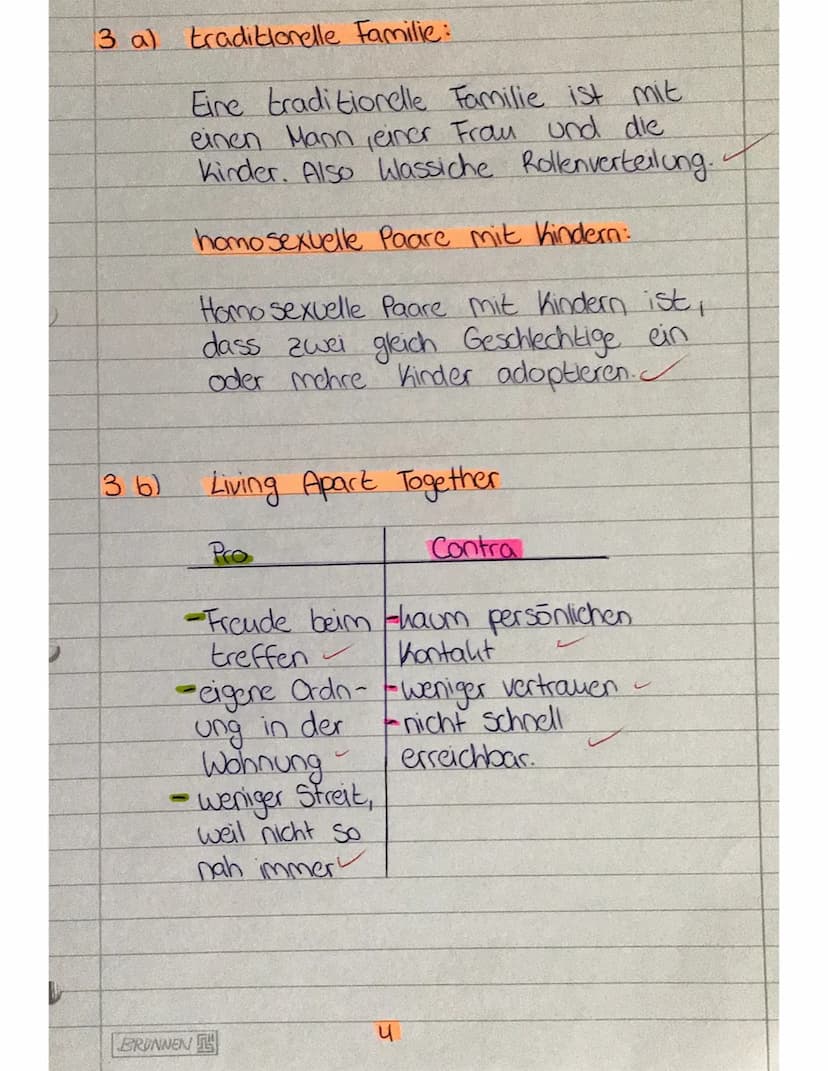 3 a) traditionelle Familie:
Eine traditionelle Familie ist mit
einen Mann, einer Frau und die
Kinder. Also klassiche Rollenverteilung.
homosexuelle Paare mit Kindern:
Homosexuelle Paare mit Kindern ist,
dass zwei gleich Geschlechtige ein
oder mehre Kinder adoptieren.
3 b) Living Apart Together
Pro
Contra
-Freude beim
treffen
-eigene Ordn-
ung in der
Wohnung
- weniger Streit,
weil nicht so
nah immer
-kaum persönlichen
Kontakt
-weniger vertrauen
-nicht schnell
erreichbar.
4
BRUNNEN